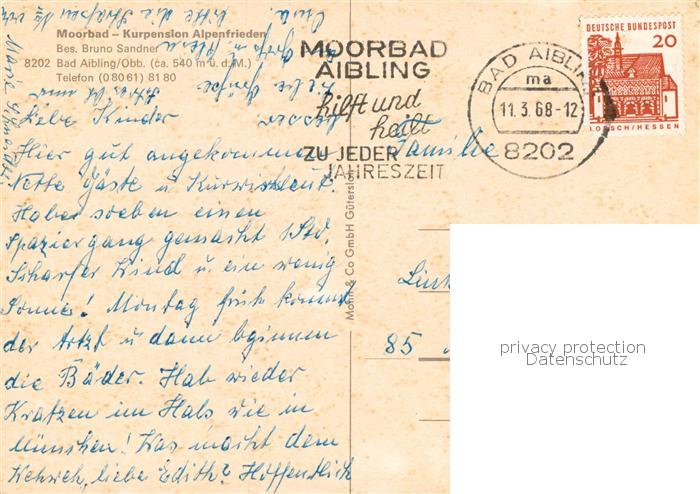 Moorbad – Kurpension Alpenfrieden
Bes. Bruno Sandner
8202 Bad Aibling/Obb. (ca. 540 m ü. d. M.)
Telefon (0 80 61) 81 80
Liebe Kinder
Hier gut angekommen
Nette Gäste u Kurwirtsleut.
Habe soeben einen
Spaziergang gemacht 1 Std.
Scharfer Wind u. ein wenig
Sonne! Montag früh kommt
der Artzt u dann beginnen
die Bäder. Hab wieder
Kratzen im Hals wie in
München! Was macht dem
liebe Edith? Hoffentlich
MOORBAD
AIBLING
hilft und
heilt
ZU JEDER
JAHRESZEIT
BAD AIBLING
ma
11.3.68-12
8202
DEUTSCHE BUNDESPOST
20
LORSCH/HESSEN
Familie
85
Mohn & Co GmbH Gütersloh
privacy protection
Datenschutz